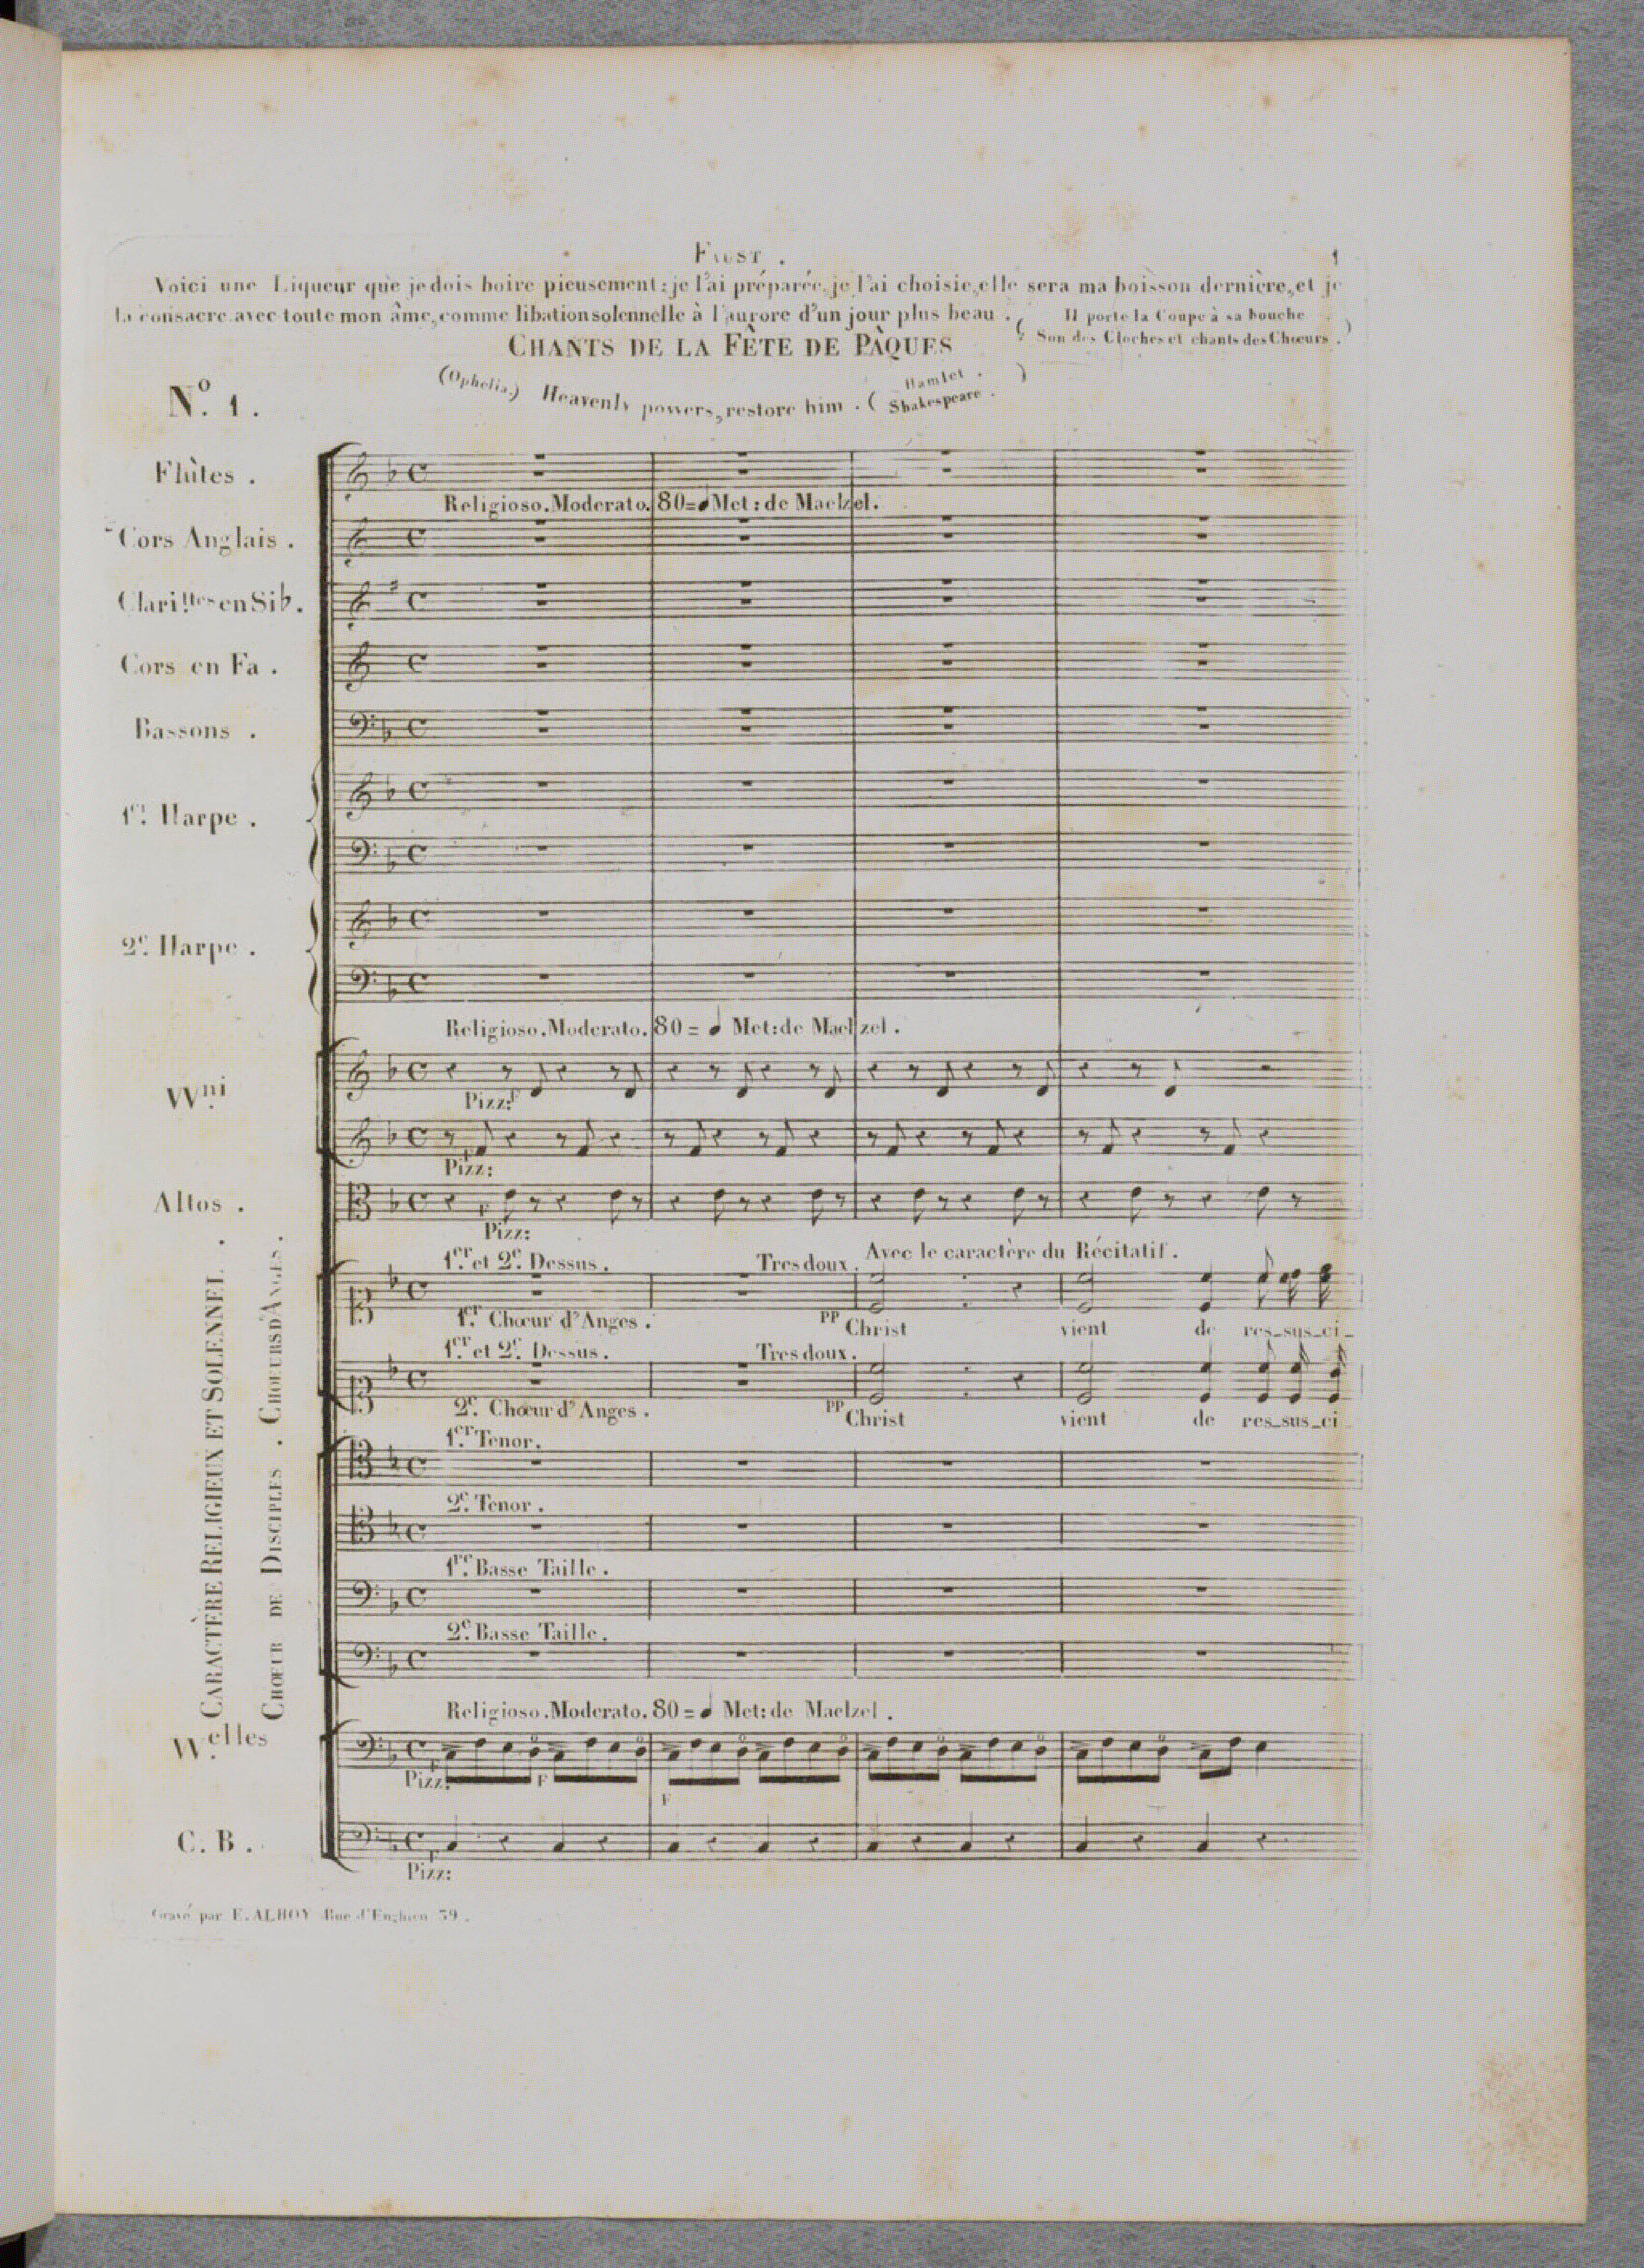 FAUST .
1
Voici une Liqueur que je dois boire pieusement: je l'ai préparée, je l'ai choisie, elle sera ma boisson dernière, et je
la consacre avec toute mon âme, comme libation solennelle à l'aurore d'un jour plus beau .
( Il porte la Coupe à sa bouche
Son des Cloches et chants des Chœurs . )
CHANTS DE LA FÊTE DE PÂQUES
(Ophelia) Heavenly powers, restore him . ( Hamlet . Shakespeare . )
N.o 1 .
Flûtes .
Religioso. Moderato. 80= Met: de Maelzel.
Cors Anglais .
Clari.ttes en Sib .
Cors en Fa .
Bassons .
1.re Harpe .
2.e Harpe .
Religioso. Moderato. 80 = Met: de Maelzel .
Vv.ni
Pizz:
Pizz:
Altos .
Pizz:
1.er et 2.e Dessus .
Tres doux .
Avec le caractère du Récitatif .
1.er Chœur d'Anges .
PP
Christ vient de res_sus_ci_
1.er et 2.e Dessus .
Tres doux .
2.e Chœur d'Anges .
PP
Christ vient de res_sus_ci_
CARACTÈRE RELIGIEUX ET SOLENNEL .
CHŒUR DE DISCIPLES . CHOEURS D'ANGES .
1.er Tenor .
2.e Tenor .
1.re Basse Taille .
2.e Basse Taille .
Religioso. Moderato. 80 = Met: de Maelzel .
Vv.elles
Pizz:
F
F
C. B .
Pizz:
Gravé par E. ALHOY Rue d'Enghien 39 .